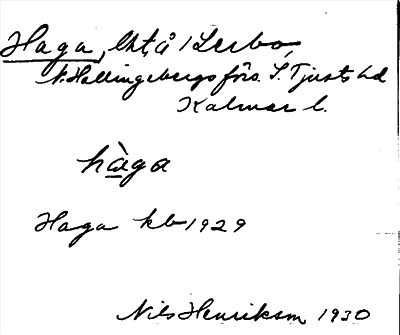 Haga, lht, å Lerbo,
N. Hallingebergs förs. S. Tjusts hd
Kalmar l.
hàga
Haga kb 1929
Nils Henriksson 1930